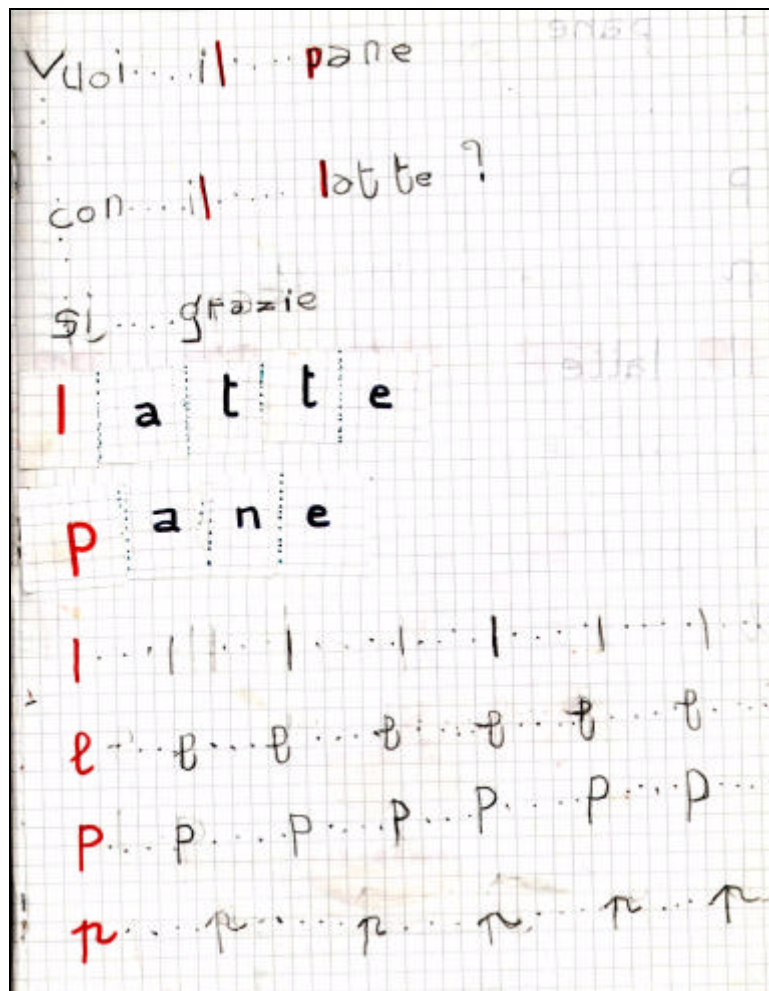 Vuoi....il.....pane
con....il..... latte ?
si.....grazie
l a t t e
p a n e
l l l l l l l
l l l l l l l
p p p p p p p
p p p p p p